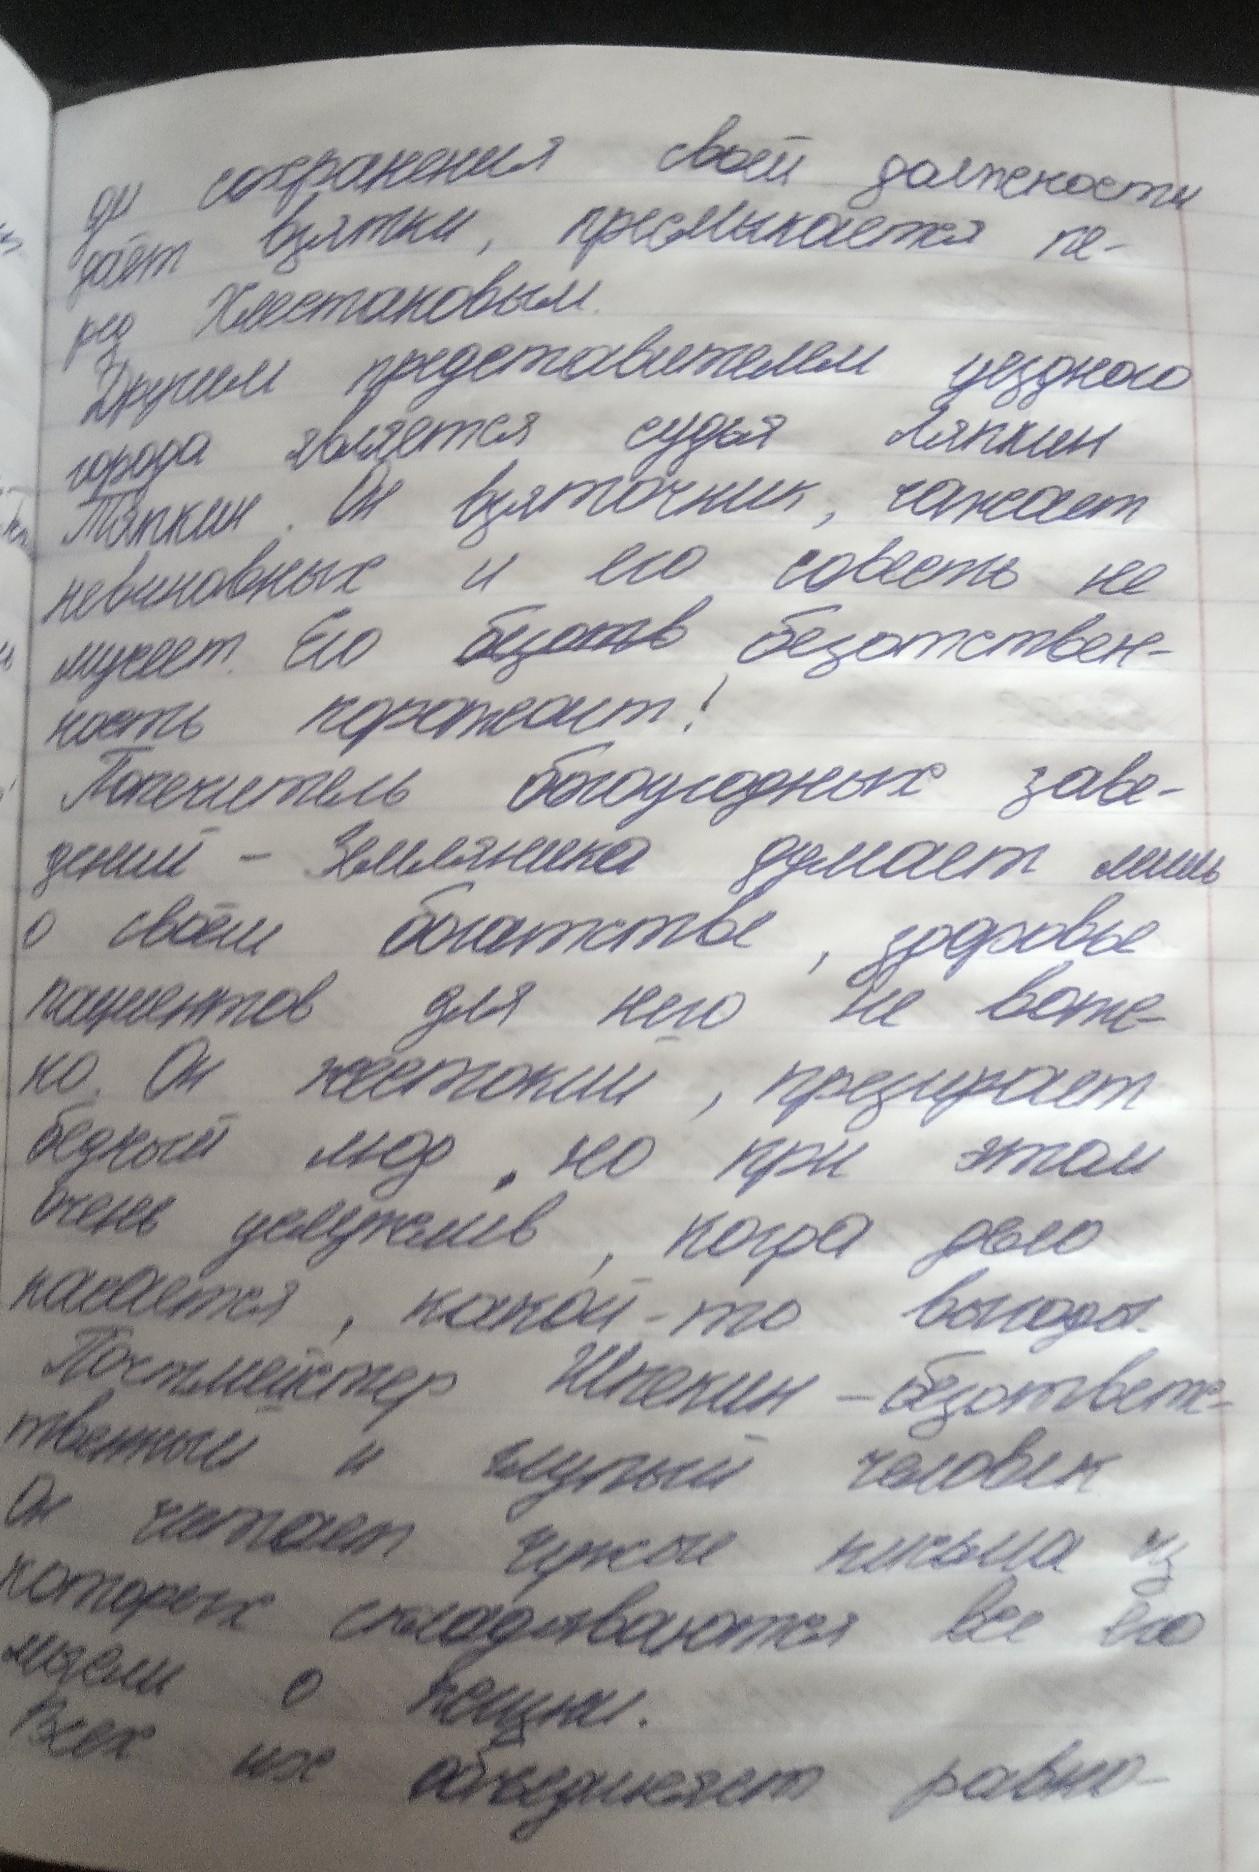 ди сохранения своей должности
даёт взятки, пресмыкается пе-
ред Хлестаковым.
Другим представителем уездного
города является судья Ляпкин
Тяпкин. Он взяточник, сажает
невиновных и его совесть не
мучает. Его безотв безотствен-
ность поражает!
Попечитель богоугодных заве-
дений - Земляника думает лишь
о своём богатстве, здоровье
пациентов для него не важ-
но. Он жестокий, презирает
бедный люд, но при этом
очень услужлив, когда дело
касается, какой-то выгоды.
Почтмейстер Шпекин - безответс-
твенный и глупый человек
Он читает чужие письма из
которых складываются все его
мысли о
Всех их объединяет равно-